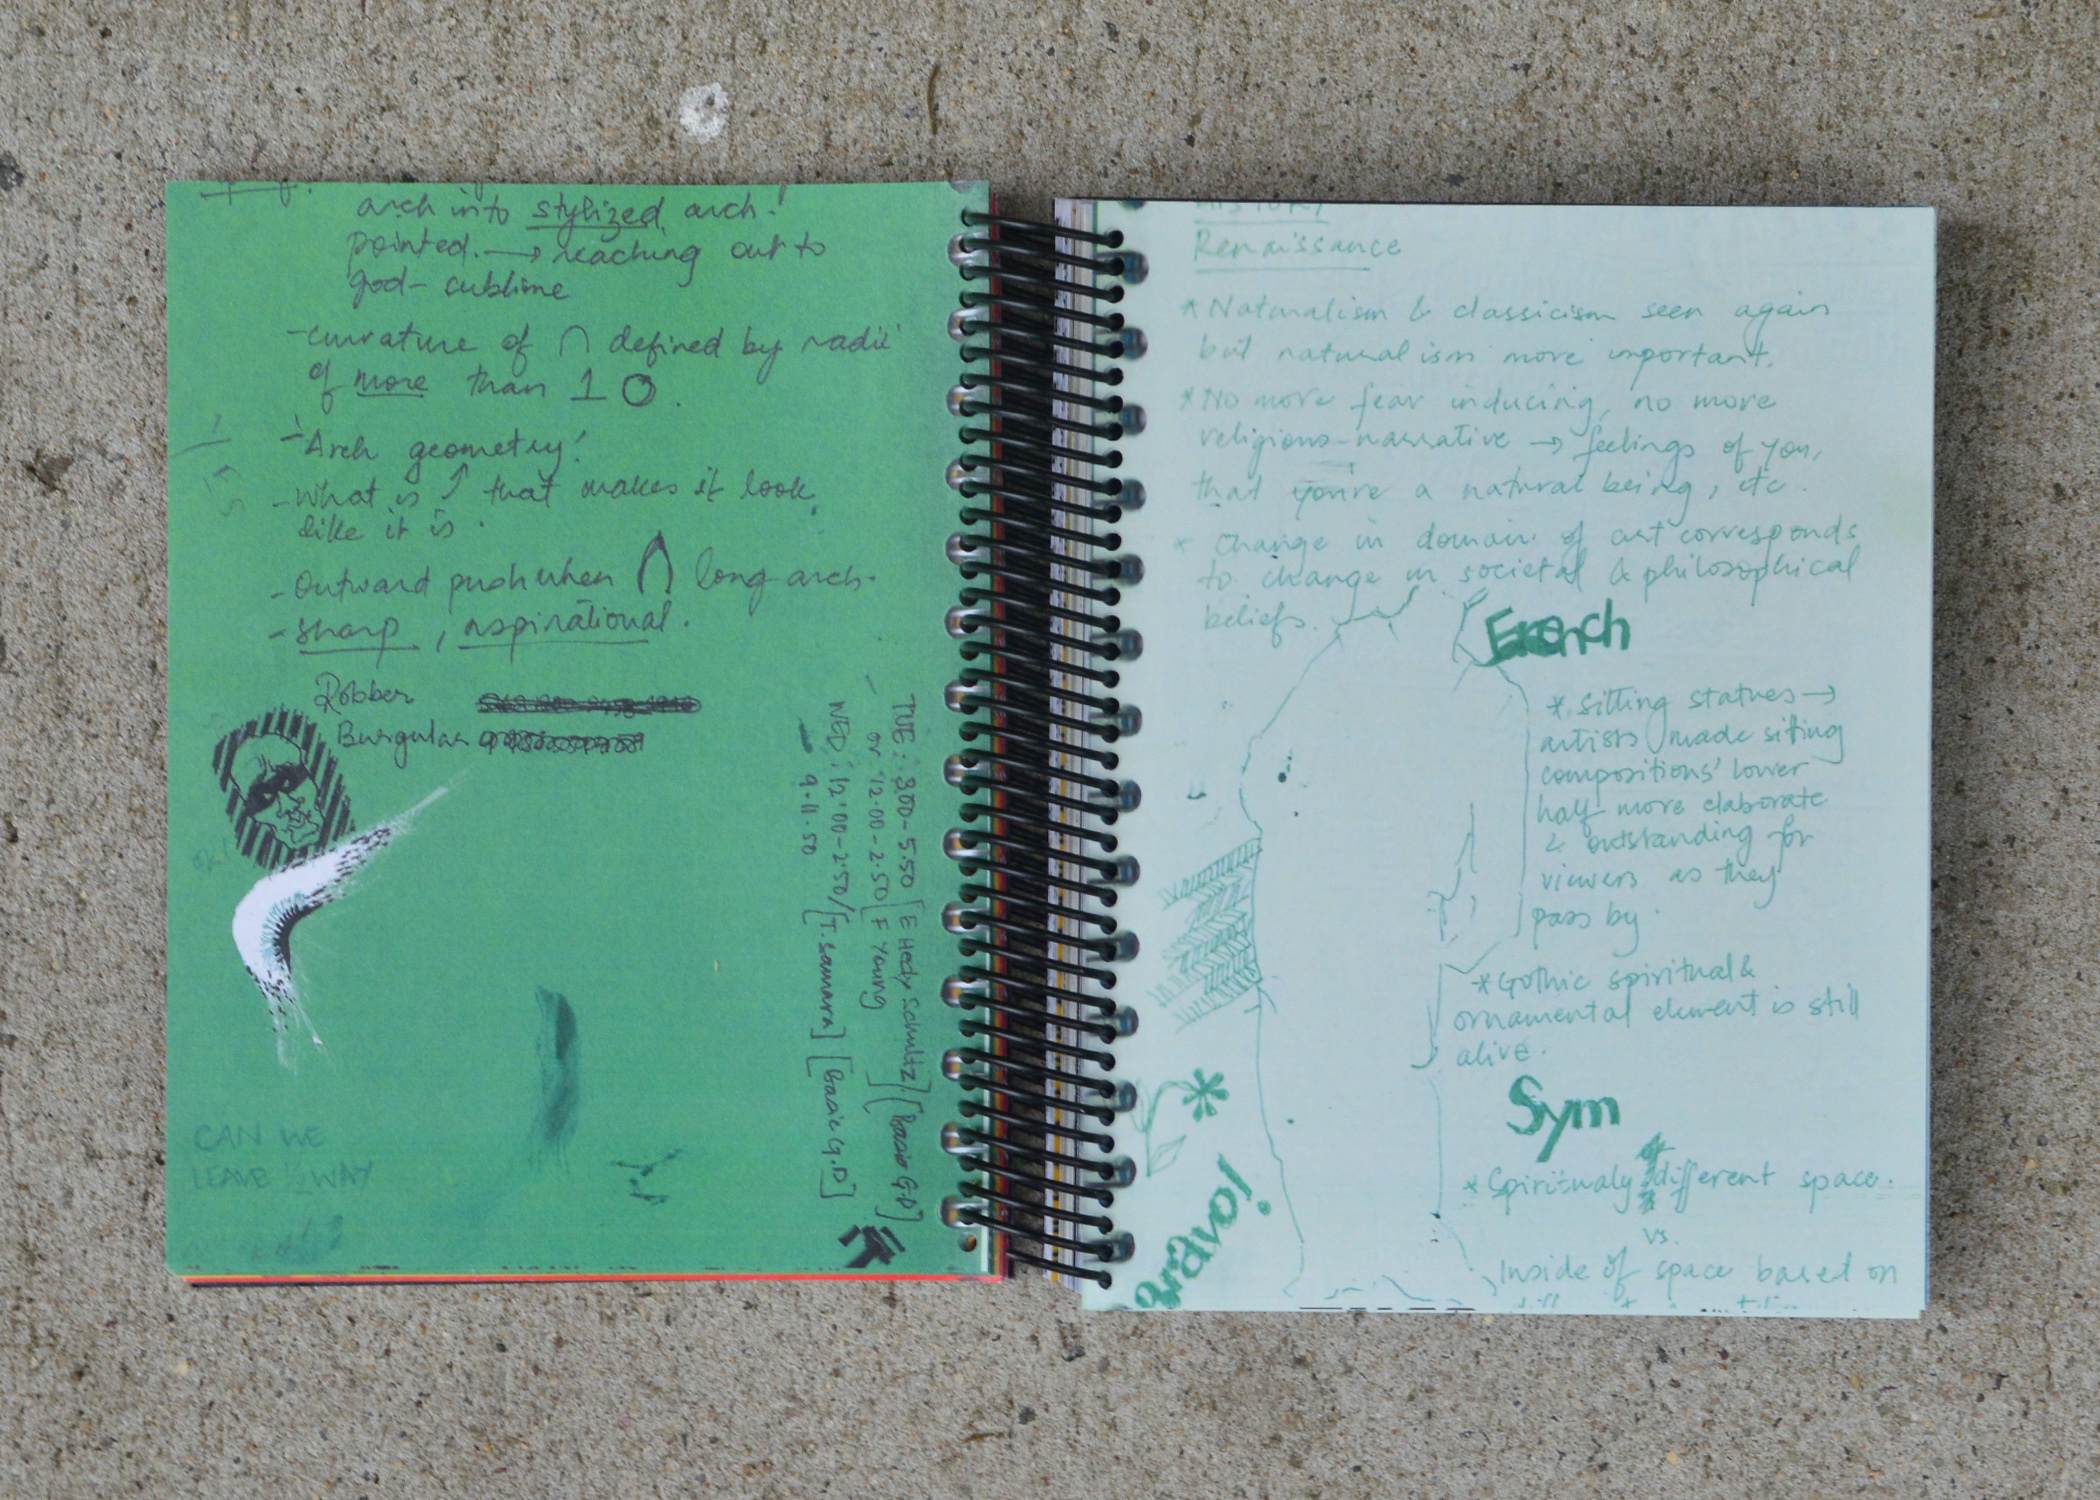 arch into stylized arch.
pointed. → reaching out to
god - sublime
- curvature of ∩ defined by radii
of more than 1 O.
- Arch geometry!
- What is ↑ that makes it look
like it is.
- Outward push when ∩ long arch.
- sharp, aspirational.
Robber
Burgular
TUE: 300-5.50 [E Hedy Schultz] [Basic G.D]
or 12.00-2.50 [F Young]
WED: 12:00-2:50/[T. Samara] [Basic G.D]
9.11.50
CAN WE
LEAVE 1/2 WAY
HISTORY
Renaissance
* Naturalism & classicism seen again
but naturalism more important.
* No more fear inducing, no more
religious-narrative → feelings of you,
that you're a natural being, etc.
* Change in domain of art corresponds
to change in societal & philosophical
beliefs.
French
* Sitting statues →
artists made sitting
compositions' lower
half more elaborate
& outstanding for
viewers as they
pass by.
* Gothic spiritual &
ornamental element is still
alive.
Sym
* Spiritualy different space.
vs.
Inside of space based on
* Bravo!